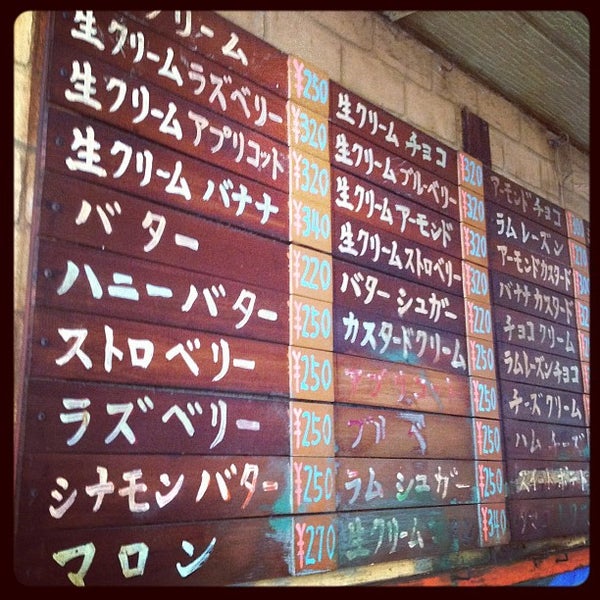 生クリーム
¥250
生クリームラズベリー
¥320
生クリームアプリコット
¥320
生クリーム バナナ
¥340
バター
¥220
ハニーバター
¥250
ストロベリー
¥250
ラズベリー
¥250
シナモンバター
¥250
マロン
¥270
生クリーム チョコ
¥320
生クリームブルーベリー
¥320
生クリームアーモンド
¥320
生クリームストロベリー
¥320
バター シュガー
¥220
カスタードクリーム
¥250
¥250
¥250
ラム シュガー
¥250
生クリーム
¥340
アーモンドチョコ
ラムレーズン
アーモンドカスタード
バナナカスタード
チョコクリーム
ラムレーズンチョコ
チーズクリーム
ハムチーズ
スイートポテト